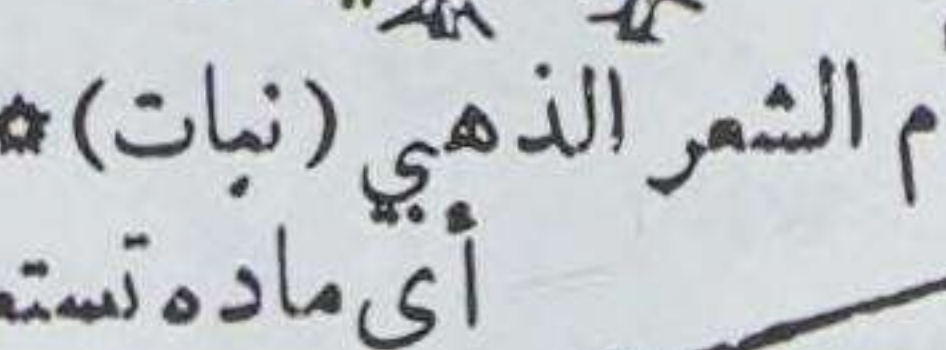 م الشعر الذهبي (نبات)
أى ماده تستع